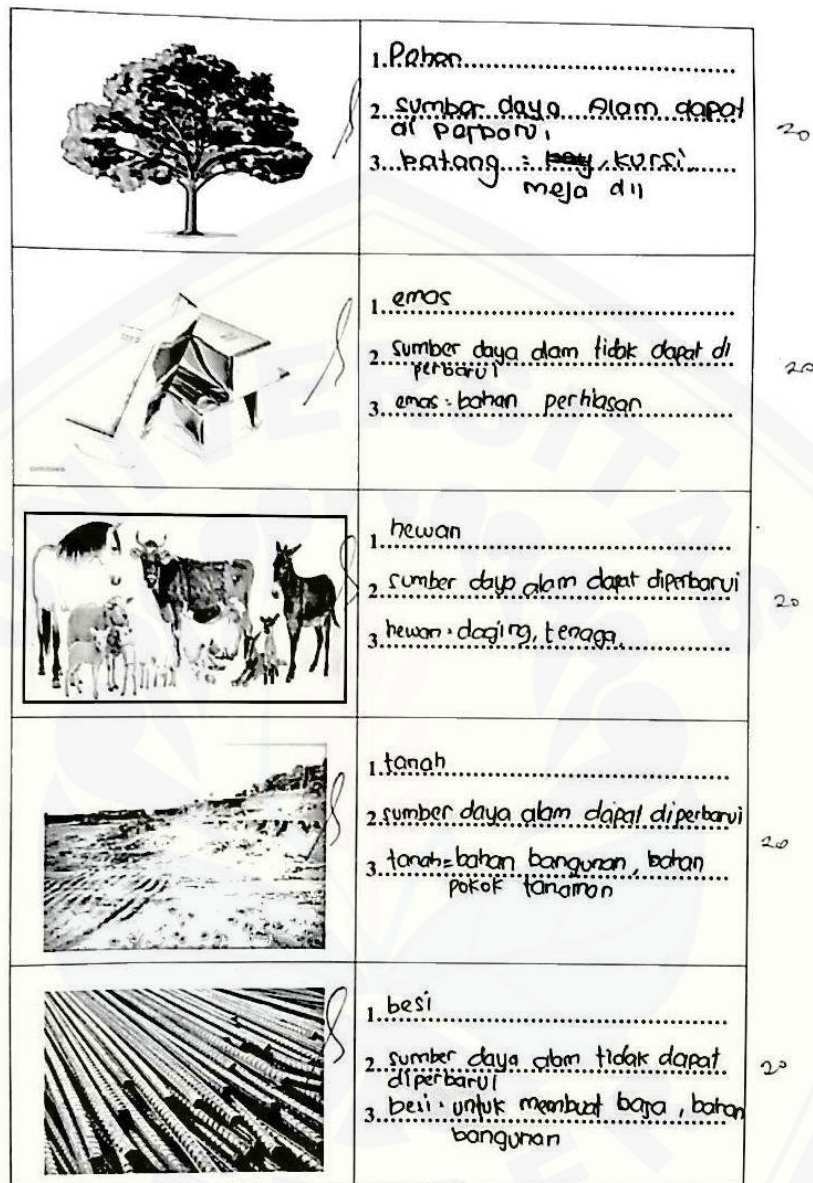 1. Pohon
2. sumber daya Alam dapat
di perbarui
3. batang : kursi
meja dll
20
1. emas
2. sumber daya alam tidak dapat di
perbarui
3. emas = bahan perhiasan
20
1. hewan
2. sumber daya alam dapat diperbarui
3. hewan = daging, tenaga
20
1. tanah
2. sumber daya alam dapat diperbarui
3. tanah = bahan bangunan, bahan
pokok tanaman
20
1. besi
2. sumber daya alam tidak dapat
diperbarui
3. besi = untuk membuat baja, bahan
bangunan
20